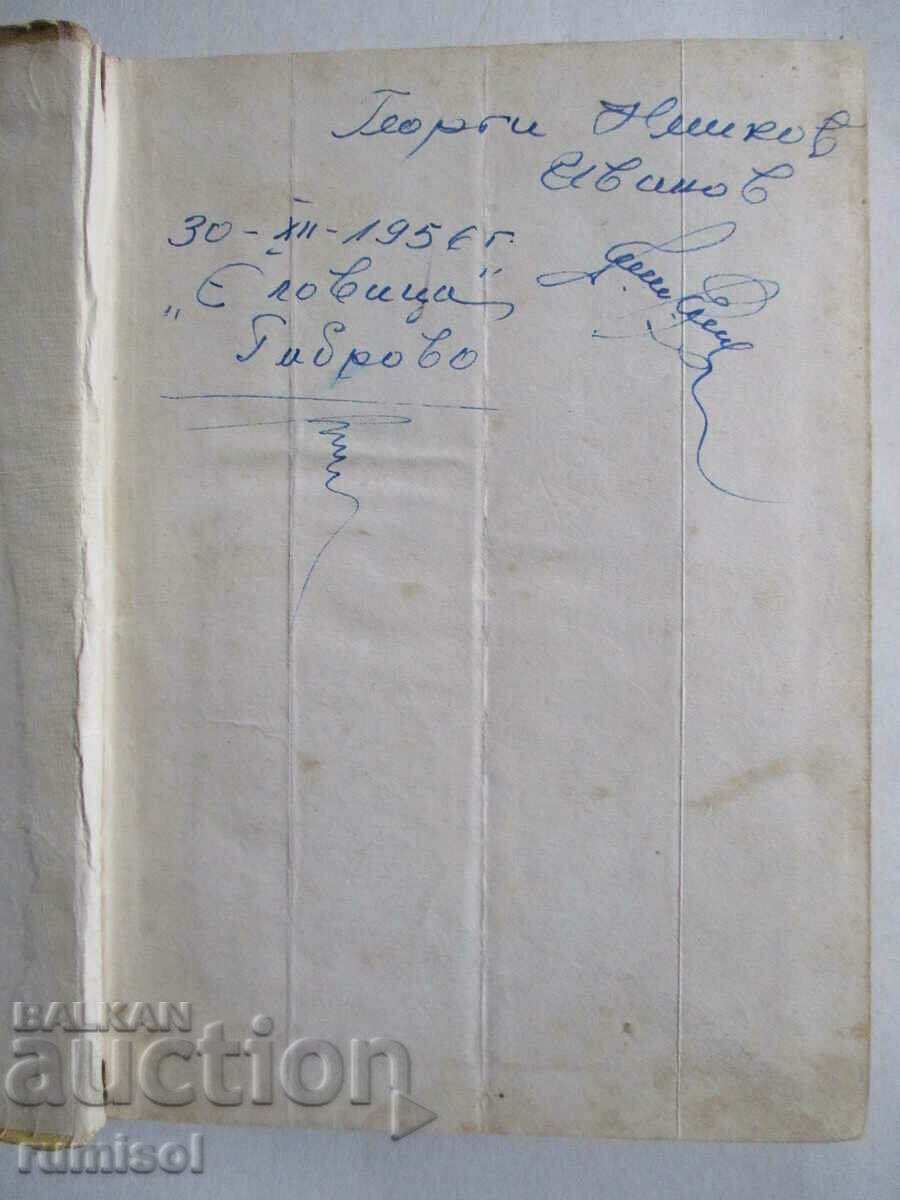 Георги Нешков
Иванов
30-XII-1956 г.
„Еловица"
Габрово
BALKAN
auction
rumisol